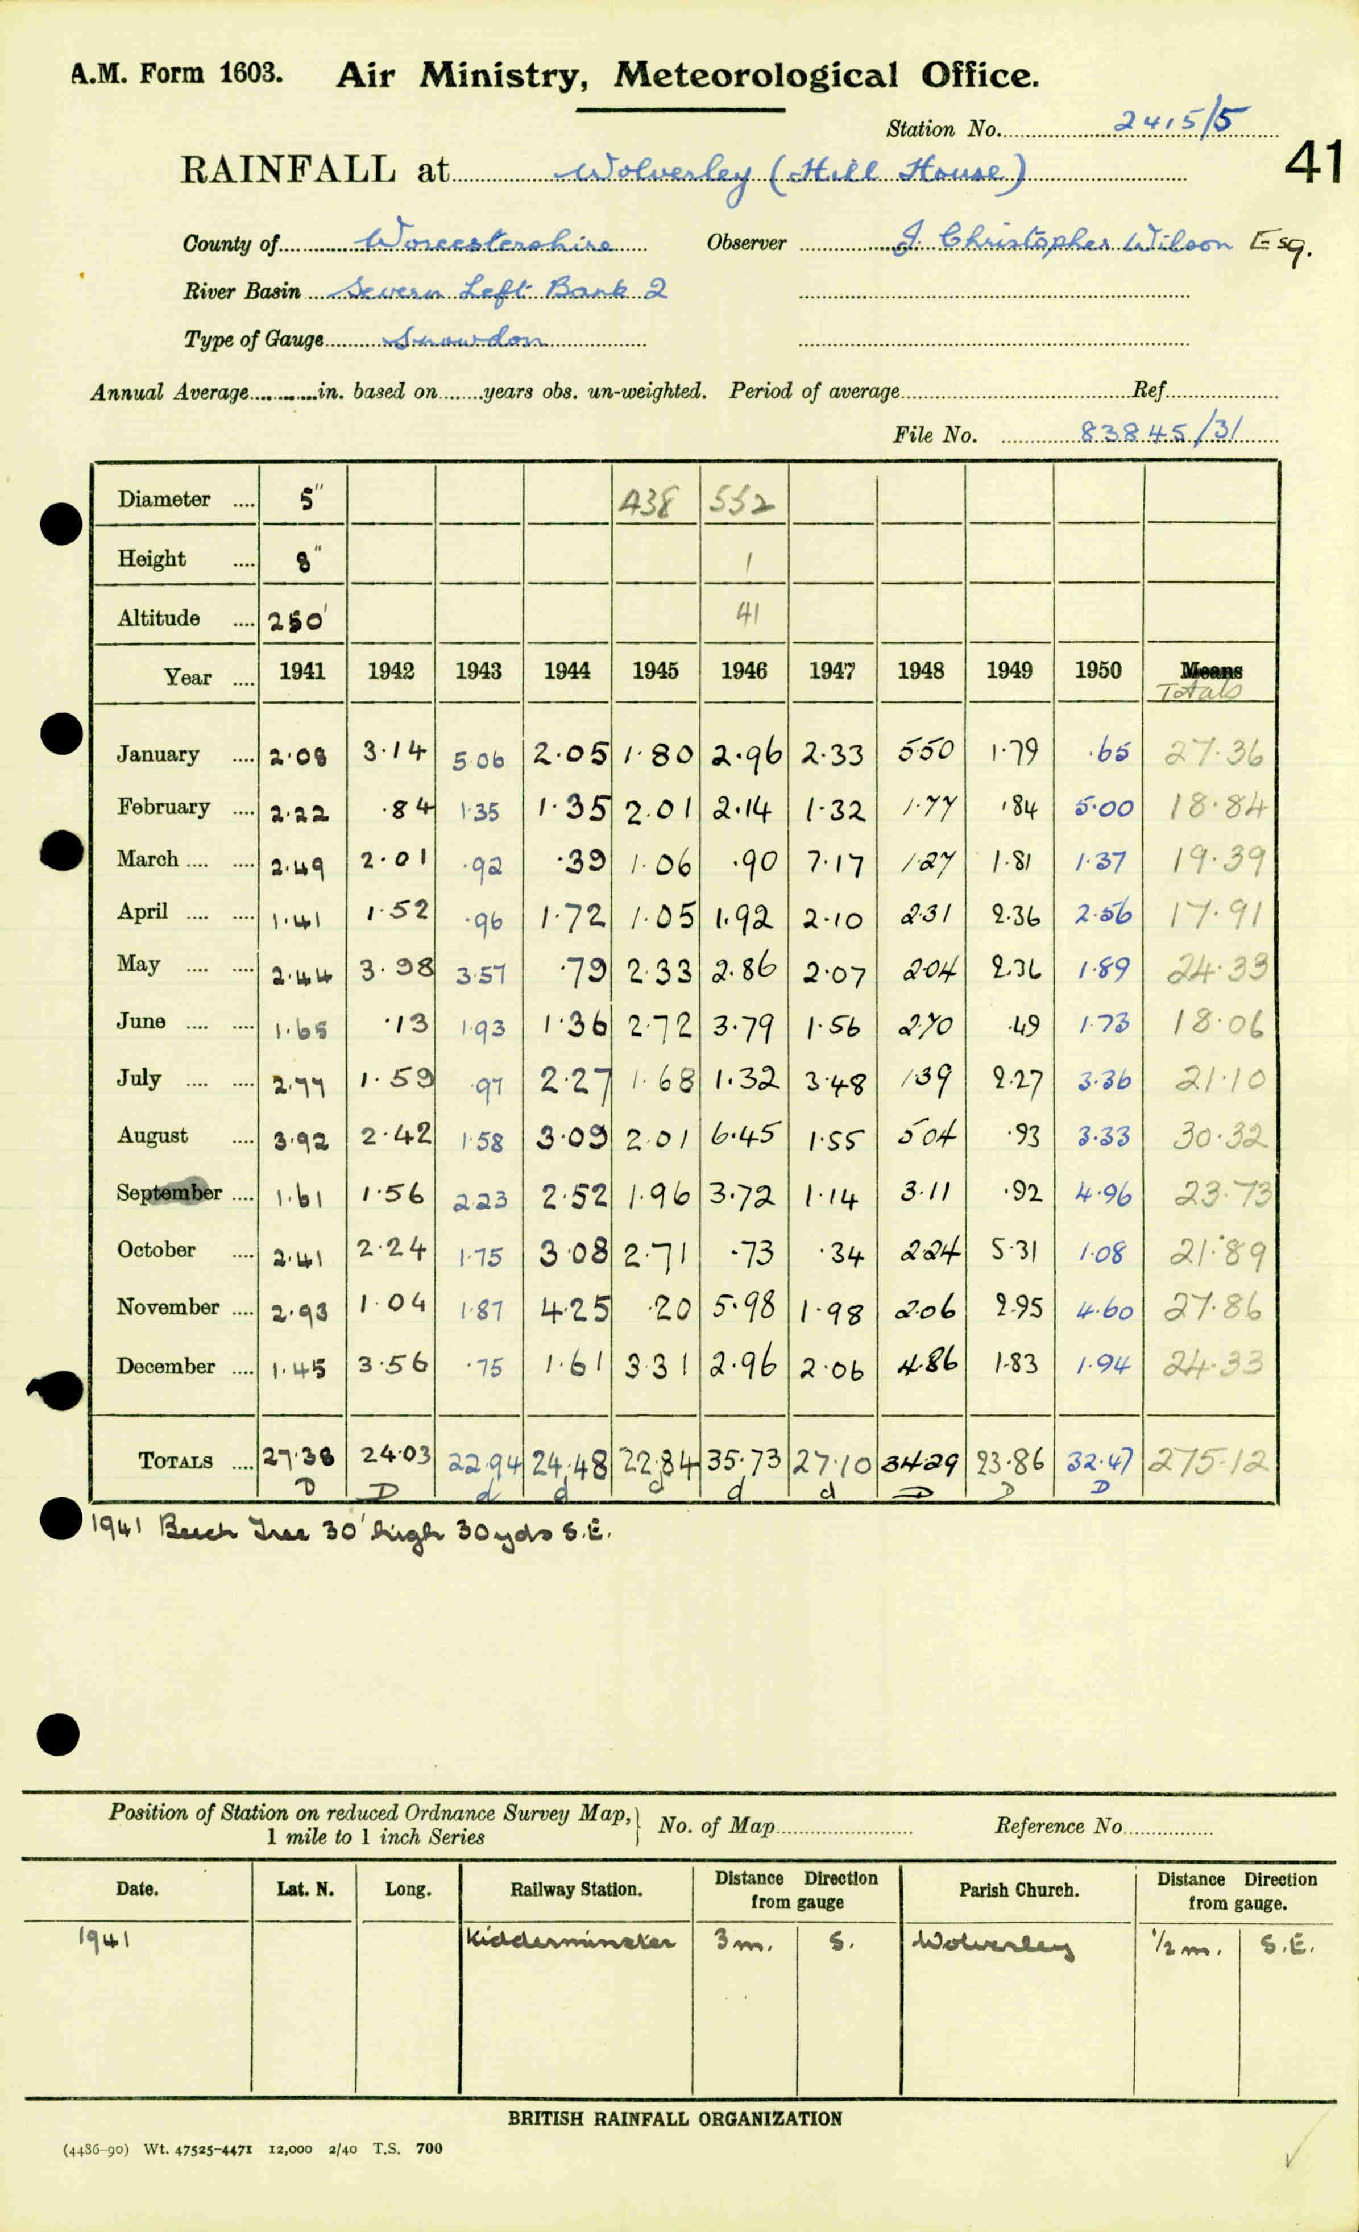 A.M. Form 1603. Air Ministry, Meteorological Office.
Station No. 2415/5
RAINFALL at Wolverley (Hill House) 41
County of Worcestershire Observer J. Christopher Wilson Esq.
River Basin Severn Left Bank 2
Type of Gauge Snowdon
Annual Average in. based on years obs. un-weighted. Period of average Ref.
File No. 83845/31
Diameter 5" 438 552
Height 8" 1
Altitude 250' 41
Year 1941 1942 1943 1944 1945 1946 1947 1948 1949 1950 Means
Totals
January 2.08 3.14 5.06 2.05 1.80 2.96 2.33 5.50 1.79 .65 27.36
February 2.22 .84 1.35 1.35 2.01 2.14 1.32 1.77 .84 5.00 18.84
March 2.49 2.01 .92 .39 1.06 .90 7.17 1.27 1.81 1.37 19.39
April 1.41 1.52 .96 1.72 1.05 1.92 2.10 2.31 2.36 2.56 17.91
May 2.44 3.98 3.57 .79 2.33 2.86 2.07 2.04 2.36 1.89 24.33
June 1.65 .13 1.93 1.36 2.72 3.79 1.56 2.70 .49 1.73 18.06
July 2.77 1.59 .97 2.27 1.68 1.32 3.48 1.39 2.27 3.36 21.10
August 3.92 2.42 1.58 3.09 2.01 6.45 1.55 5.04 .93 3.33 30.32
September 1.61 1.56 2.23 2.52 1.96 3.72 1.14 3.11 .92 4.96 23.73
October 2.41 2.24 1.75 3.08 2.71 .73 .34 2.24 5.31 1.08 21.89
November 2.93 1.04 1.87 4.25 .20 5.98 1.98 2.06 2.95 4.60 27.86
December 1.45 3.56 .75 1.61 3.31 2.96 2.06 4.86 1.83 1.94 24.33
TOTALS 27.38 24.03 22.94 24.48 22.84 35.73 27.10 34.29 23.86 32.47 275.12
D D d d d d d D D D
1941 Beech Tree 30' high 30yds S.E.
Position of Station on reduced Ordnance Survey Map, No. of Map Reference No
1 mile to 1 inch Series
Date. Lat. N. Long. Railway Station. Distance from gauge Direction Parish Church. Distance from gauge. Direction
1941 Kidderminster 3m. S. Wolverley 1/2 m. S.E.
BRITISH RAINFALL ORGANIZATION
(4486-90) Wt. 47525-4471 12,000 2/40 T.S. 700